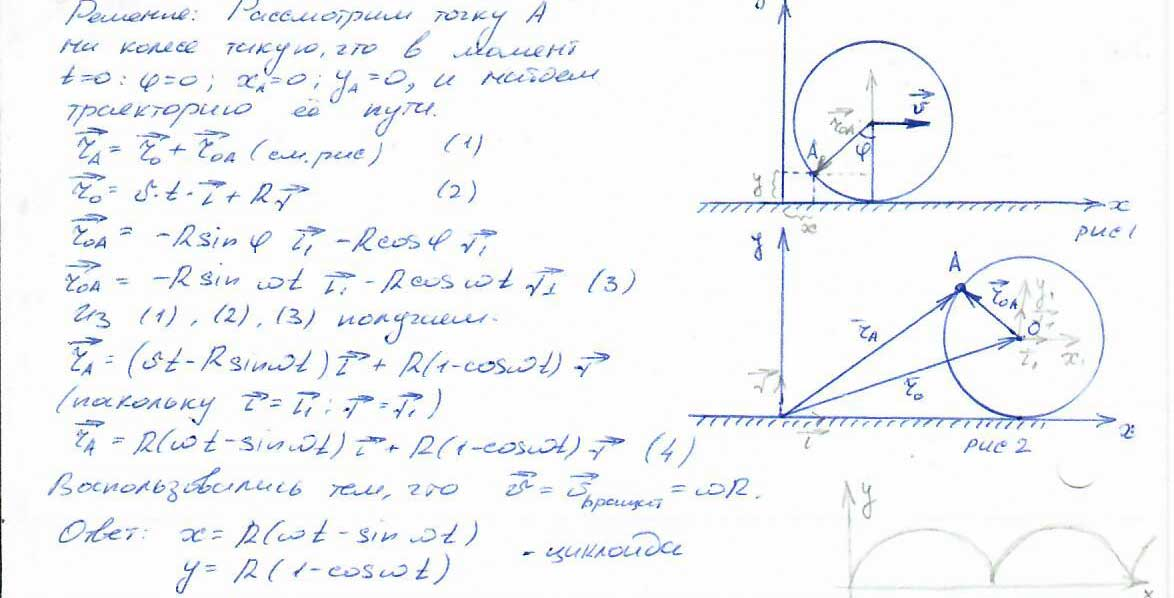 Решение: Рассмотрим точку А
на колесе такую, что в момент
t=0: φ=0; x_A=0; y_A=0, и найдем
траекторию её пути.
r⃗_A = r⃗_0 + r⃗_0A (см. рис) (1)
r⃗_0 = υ·t·i⃗ + R j⃗ (2)
r⃗_0A = -R sin φ i⃗_1 - R cos φ j⃗_1
r⃗_0A = -R sin ωt i⃗_1 - R cos ωt j⃗_1 (3)
Из (1), (2), (3) получием-
r⃗_A = (υt - R sin ωt) i⃗ + R(1-cos ωt) j⃗
(пакольку i⃗ = i⃗_1; j⃗ = j⃗_1)
r⃗_A = R(ωt - sin ωt) i⃗ + R(1-cos ωt) j⃗ (4)
Воспользовались тем, что υ⃗ = υ⃗_вращат = ωR.
Ответ: x = R(ωt - sin ωt)
y = R(1-cos ωt) - циклоида
y
υ⃗
r⃗_0A
A
φ
y
x
x
рис 1
y
A
r⃗_0A
y_1
j⃗_1
O
i⃗_1
x_1
r⃗_A
r⃗_0
j⃗
i⃗
x
рис 2
y
x